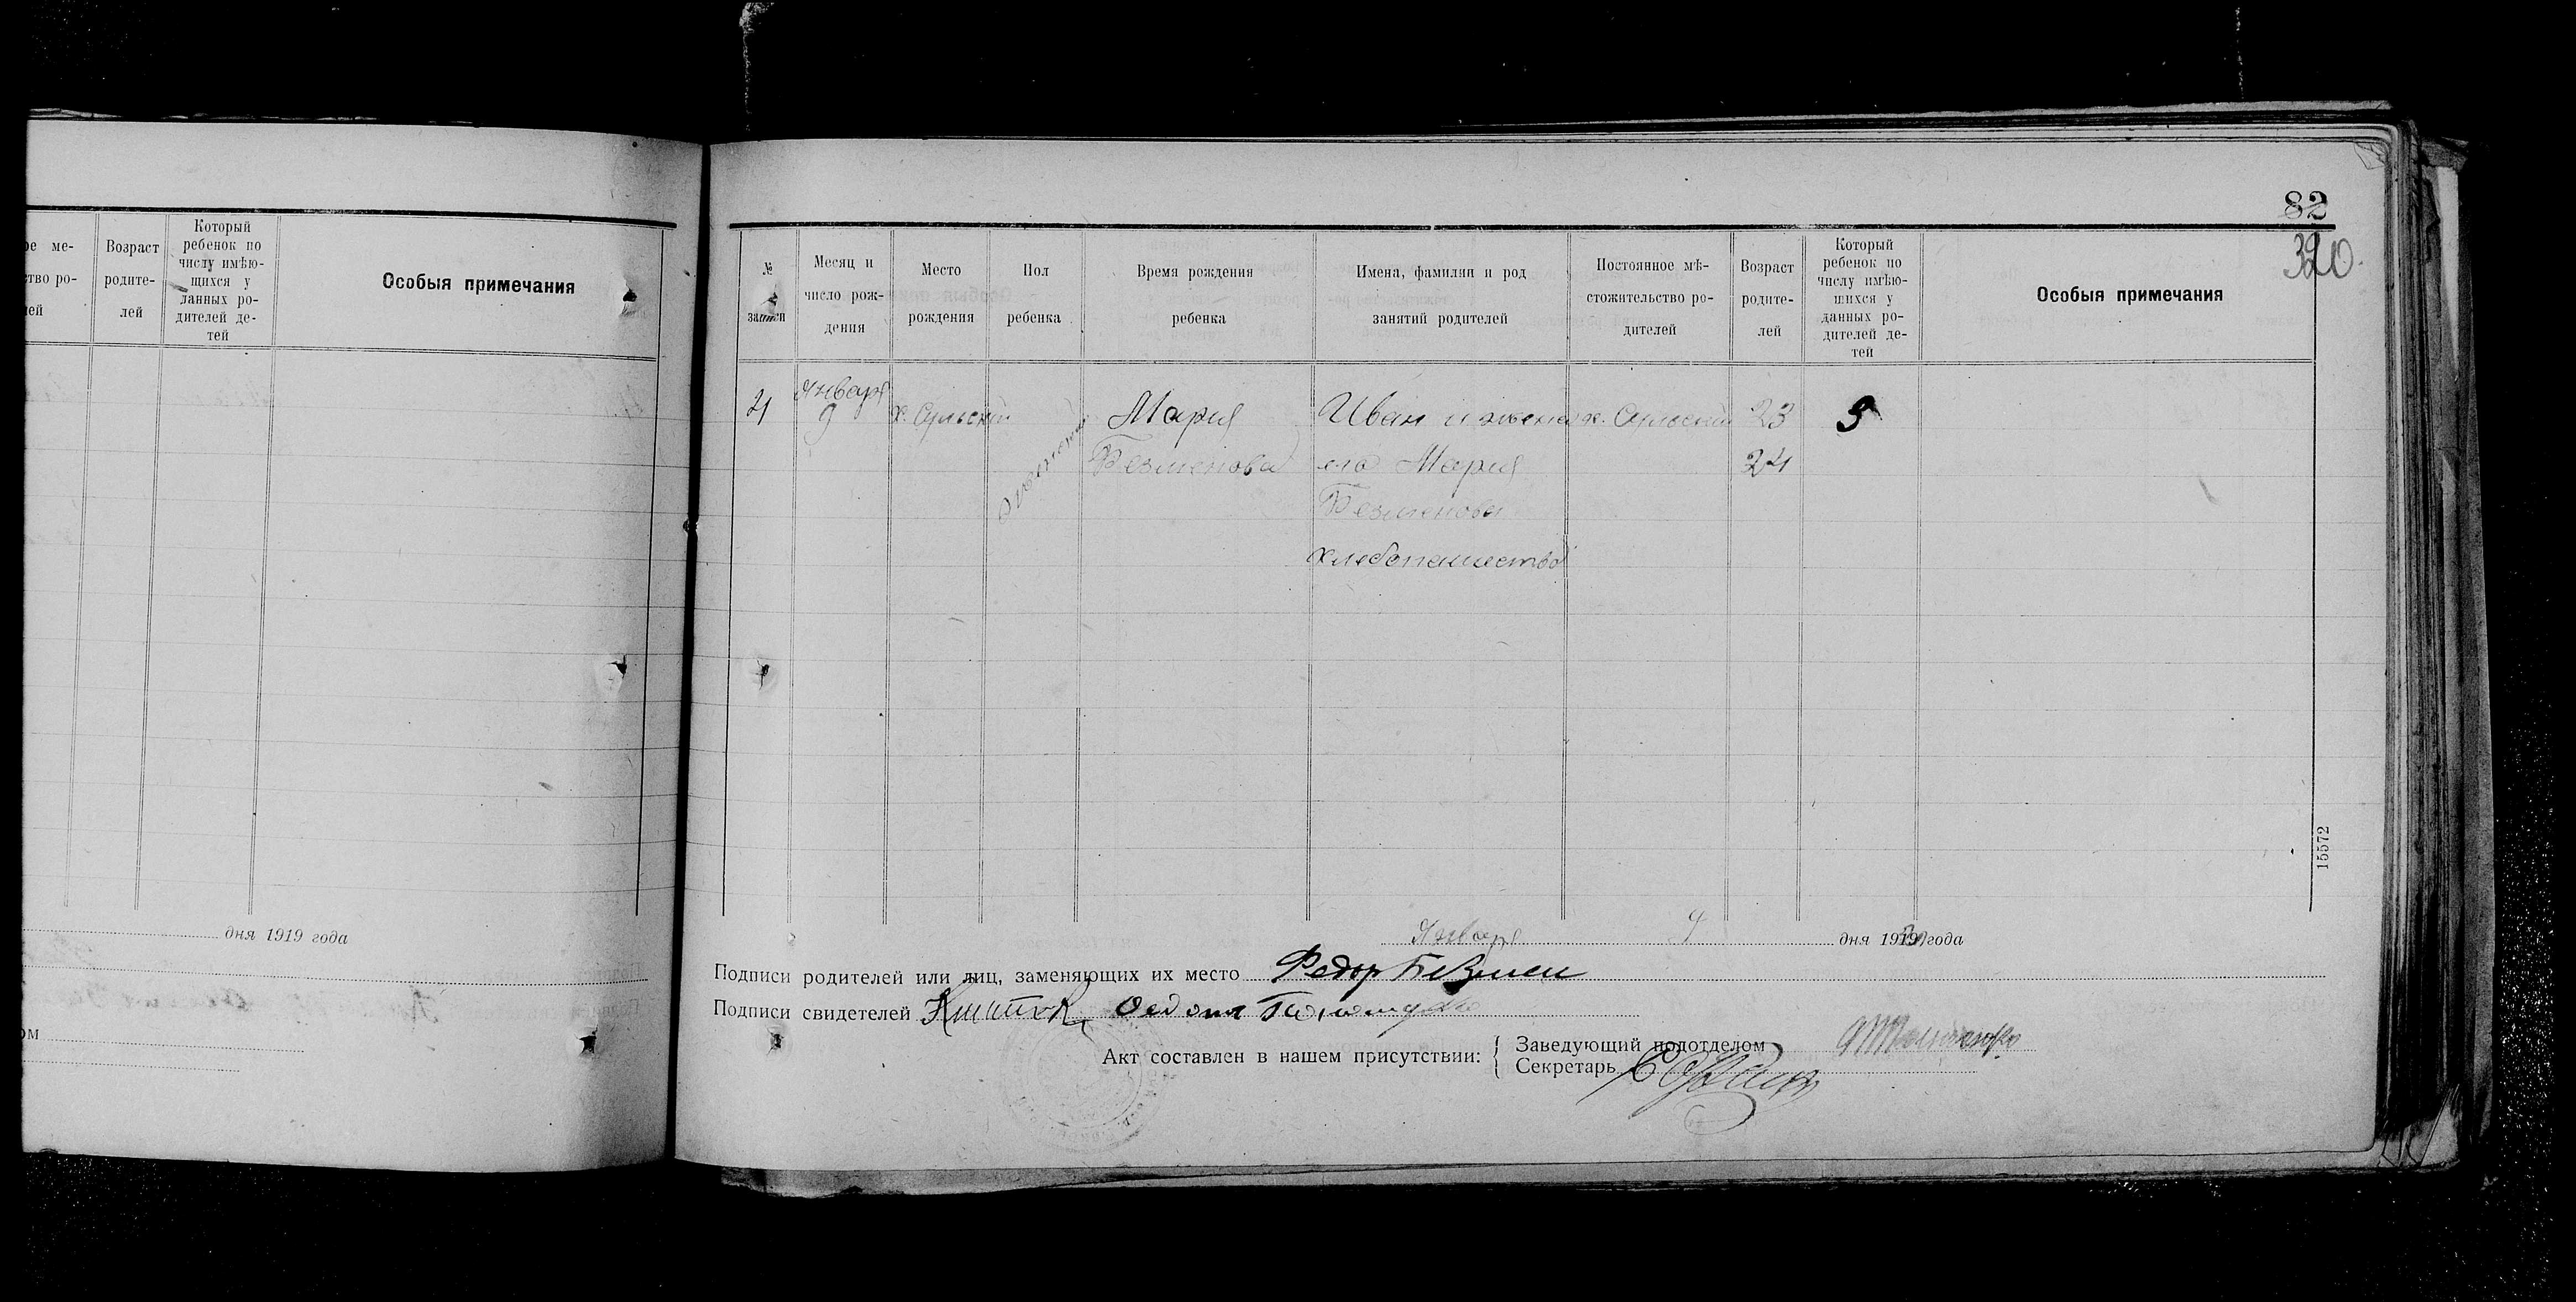 ое ме-
ство ро-
лей
Возраст
родите-
лей
Который
ребенок по
числу имѣю-
щихся у
данных ро-
дителей де-
тей
Особыя примечания
дня 1919 года
ом
82
320.
№
записи
Месяц и
число рож-
дения
Место
рождения
Пол
ребенка
Время рождения
ребенка
Имена, фамилии и род
занятий родителей
Постоянное мѣ-
стожительство ро-
дителей
Возраст
родите-
лей
Который
ребенок по
числу имѣю-
щихся у
данных ро-
дителей де-
тей
Особыя примечания
Января
9
х. Сульский
Мария
Безменова
Иван и жена
его Мария
Безменовы
хлебопашество
х. Сульский
23
24
3
15572
Января 9 дня 1919 года
Подписи родителей или лиц, заменяющих их место Федор Безмен
Подписи свидетелей
Акт составлен в нашем присутствии:
Заведующий подотделом
Секретарь